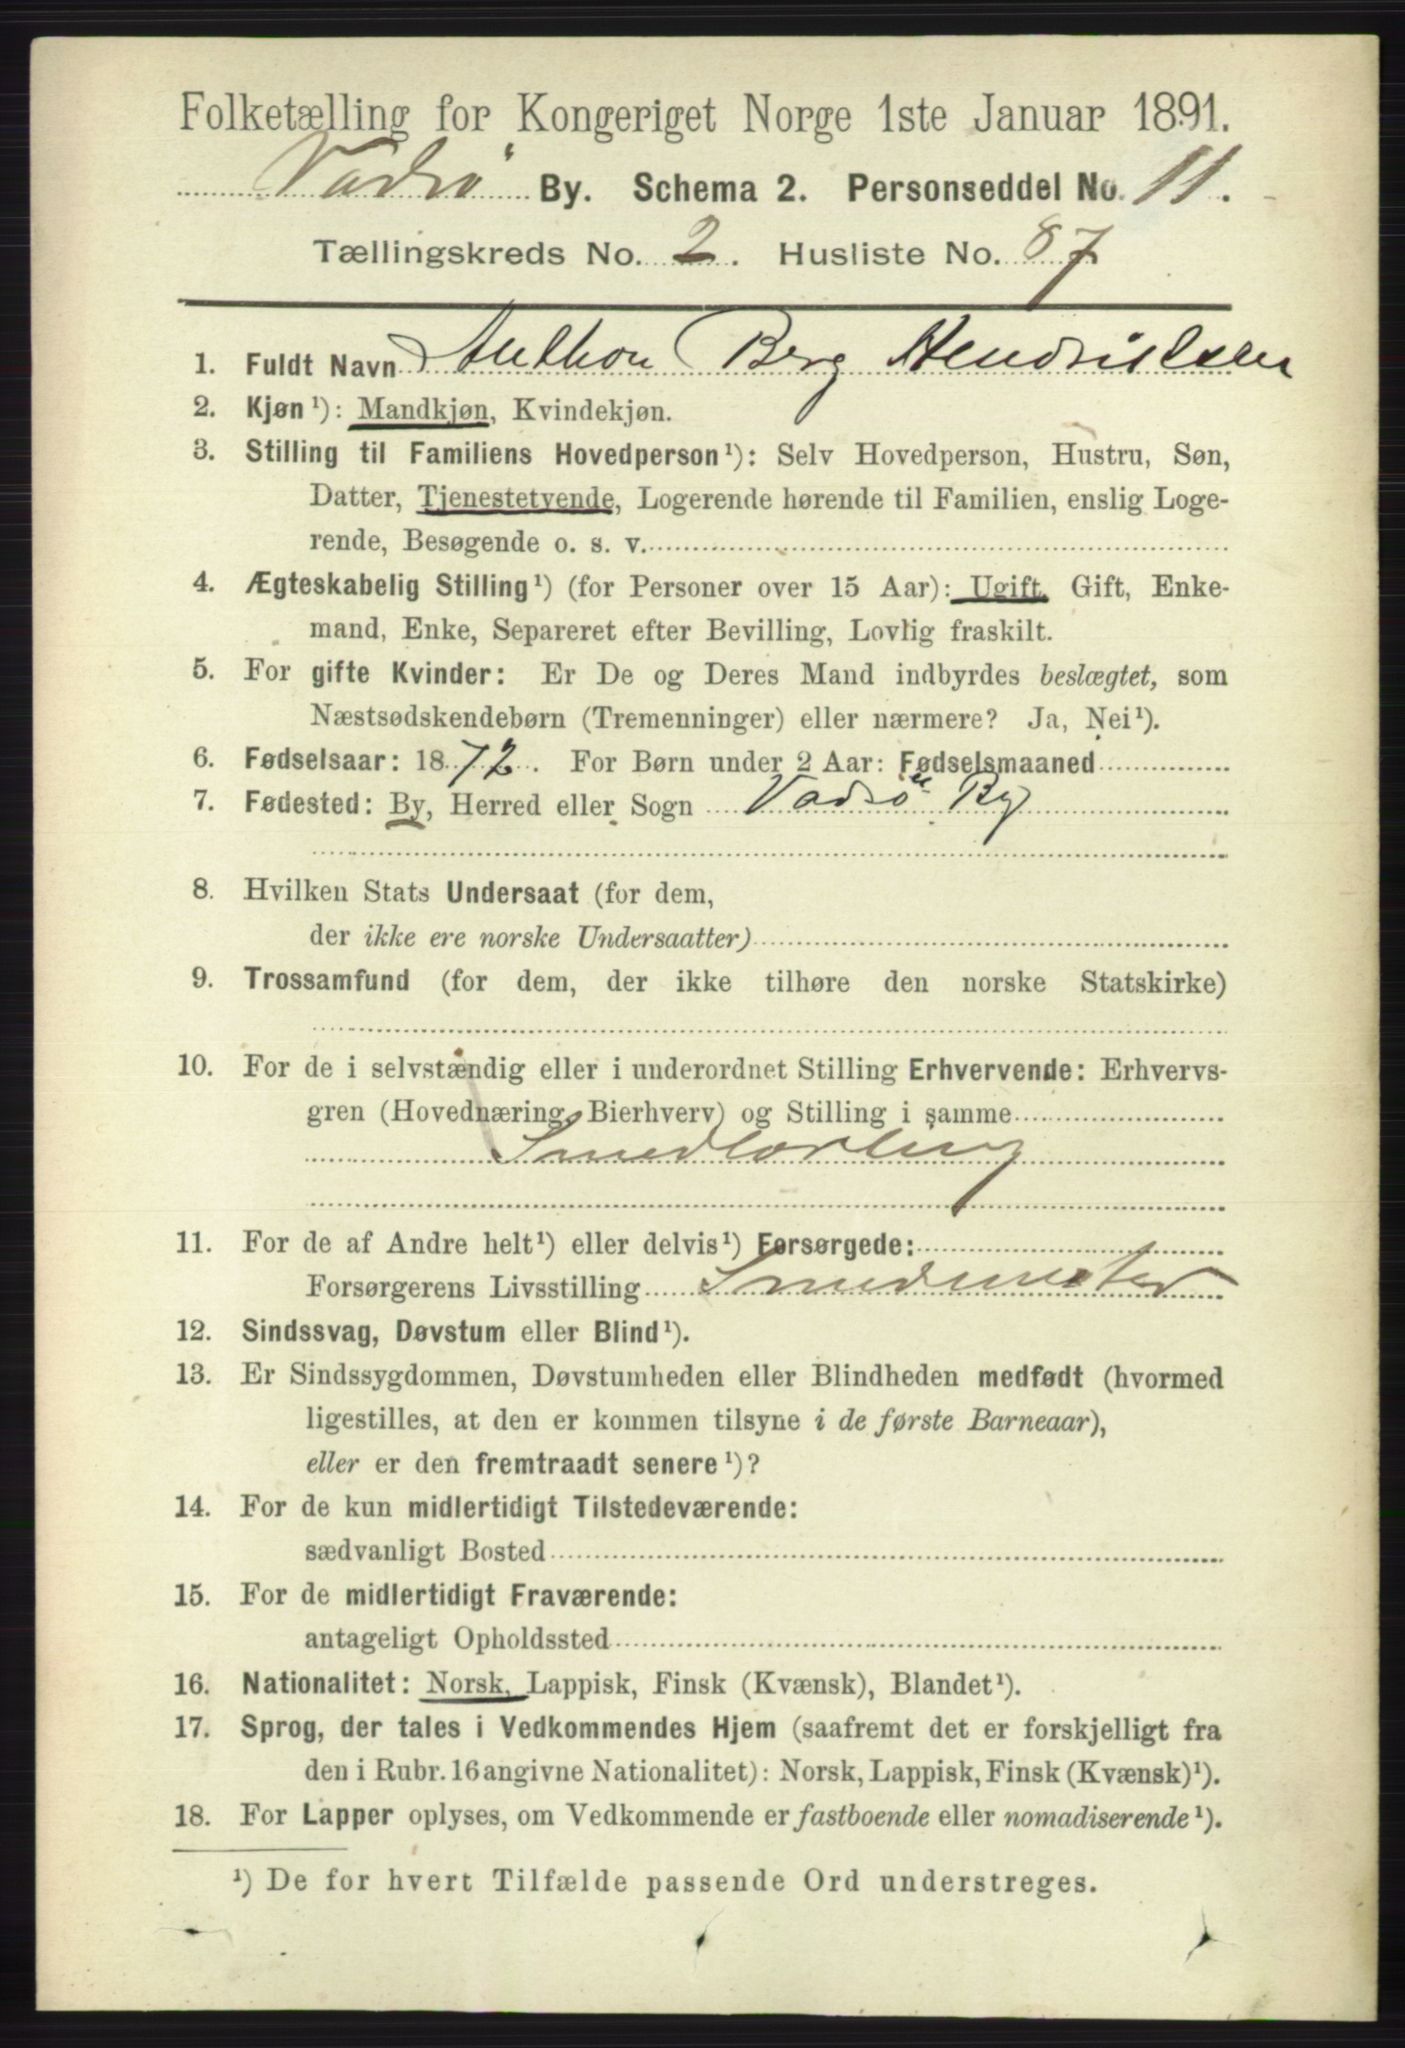 Folketælling for Kongeriget Norge 1ste Januar 1891.
Vadsö By. Schema 2. Personseddel No. 11.
Tællingskreds No. 2. Husliste No. 87
1. Fuldt Navn Anthon Berg Hendriksen
2. Kjøn¹): Mandkjøn, Kvindekjøn.
3. Stilling til Familiens Hovedperson¹): Selv Hovedperson, Hustru, Søn,
Datter, Tjenestetyende, Logerende hørende til Familien, enslig Loge-
rende, Besøgende o. s. v.
4. Ægteskabelig Stilling¹) (for Personer over 15 Aar): Ugift, Gift, Enke-
mand, Enke, Separeret efter Bevilling, Lovlig fraskilt.
5. For gifte Kvinder: Er De og Deres Mand indbyrdes beslægtet, som
Næstsødskendebørn (Tremenninger) eller nærmere? Ja, Nei¹).
6. Fødselsaar: 1872. For Børn under 2 Aar: Fødselsmaaned
7. Fødested: By, Herred eller Sogn Vadsö By
8. Hvilken Stats Undersaat (for dem,
der ikke ere norske Undersaatter)
9. Trossamfund (for dem, der ikke tilhøre den norske Statskirke)
10. For de i selvstændig eller i underordnet Stilling Erhvervende: Erhvervs-
gren (Hovednæring, Bierhverv) og Stilling i samme
Smedlærling
11. For de af Andre helt¹) eller delvis¹) Forsørgede:
Forsørgerens Livsstilling Smedmester
12. Sindssvag, Døvstum eller Blind¹).
13. Er Sindssygdommen, Døvstumheden eller Blindheden medfødt (hvormed
ligestilles, at den er kommen tilsyne i de første Barneaar),
eller er den fremtraadt senere¹)?
14. For de kun midlertidigt Tilstedeværende:
sædvanligt Bosted
15. For de midlertidigt Fraværende:
antageligt Opholdssted
16. Nationalitet: Norsk, Lappisk, Finsk (Kvænsk), Blandet¹).
17. Sprog, der tales i Vedkommendes Hjem (saafremt det er forskjelligt fra
den i Rubr. 16 angivne Nationalitet): Norsk, Lappisk, Finsk (Kvænsk)¹).
18. For Lapper oplyses, om Vedkommende er fastboende eller nomadiserende¹).
¹) De for hvert Tilfælde passende Ord understreges.